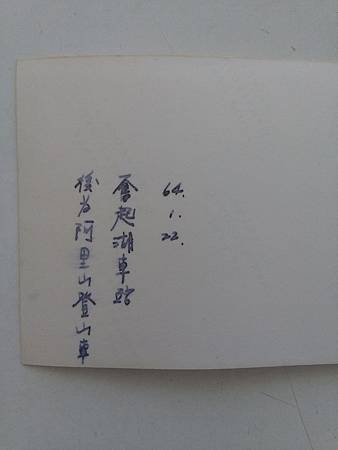 64.
1.
22.
奮起湖車站
後為阿里山登山車